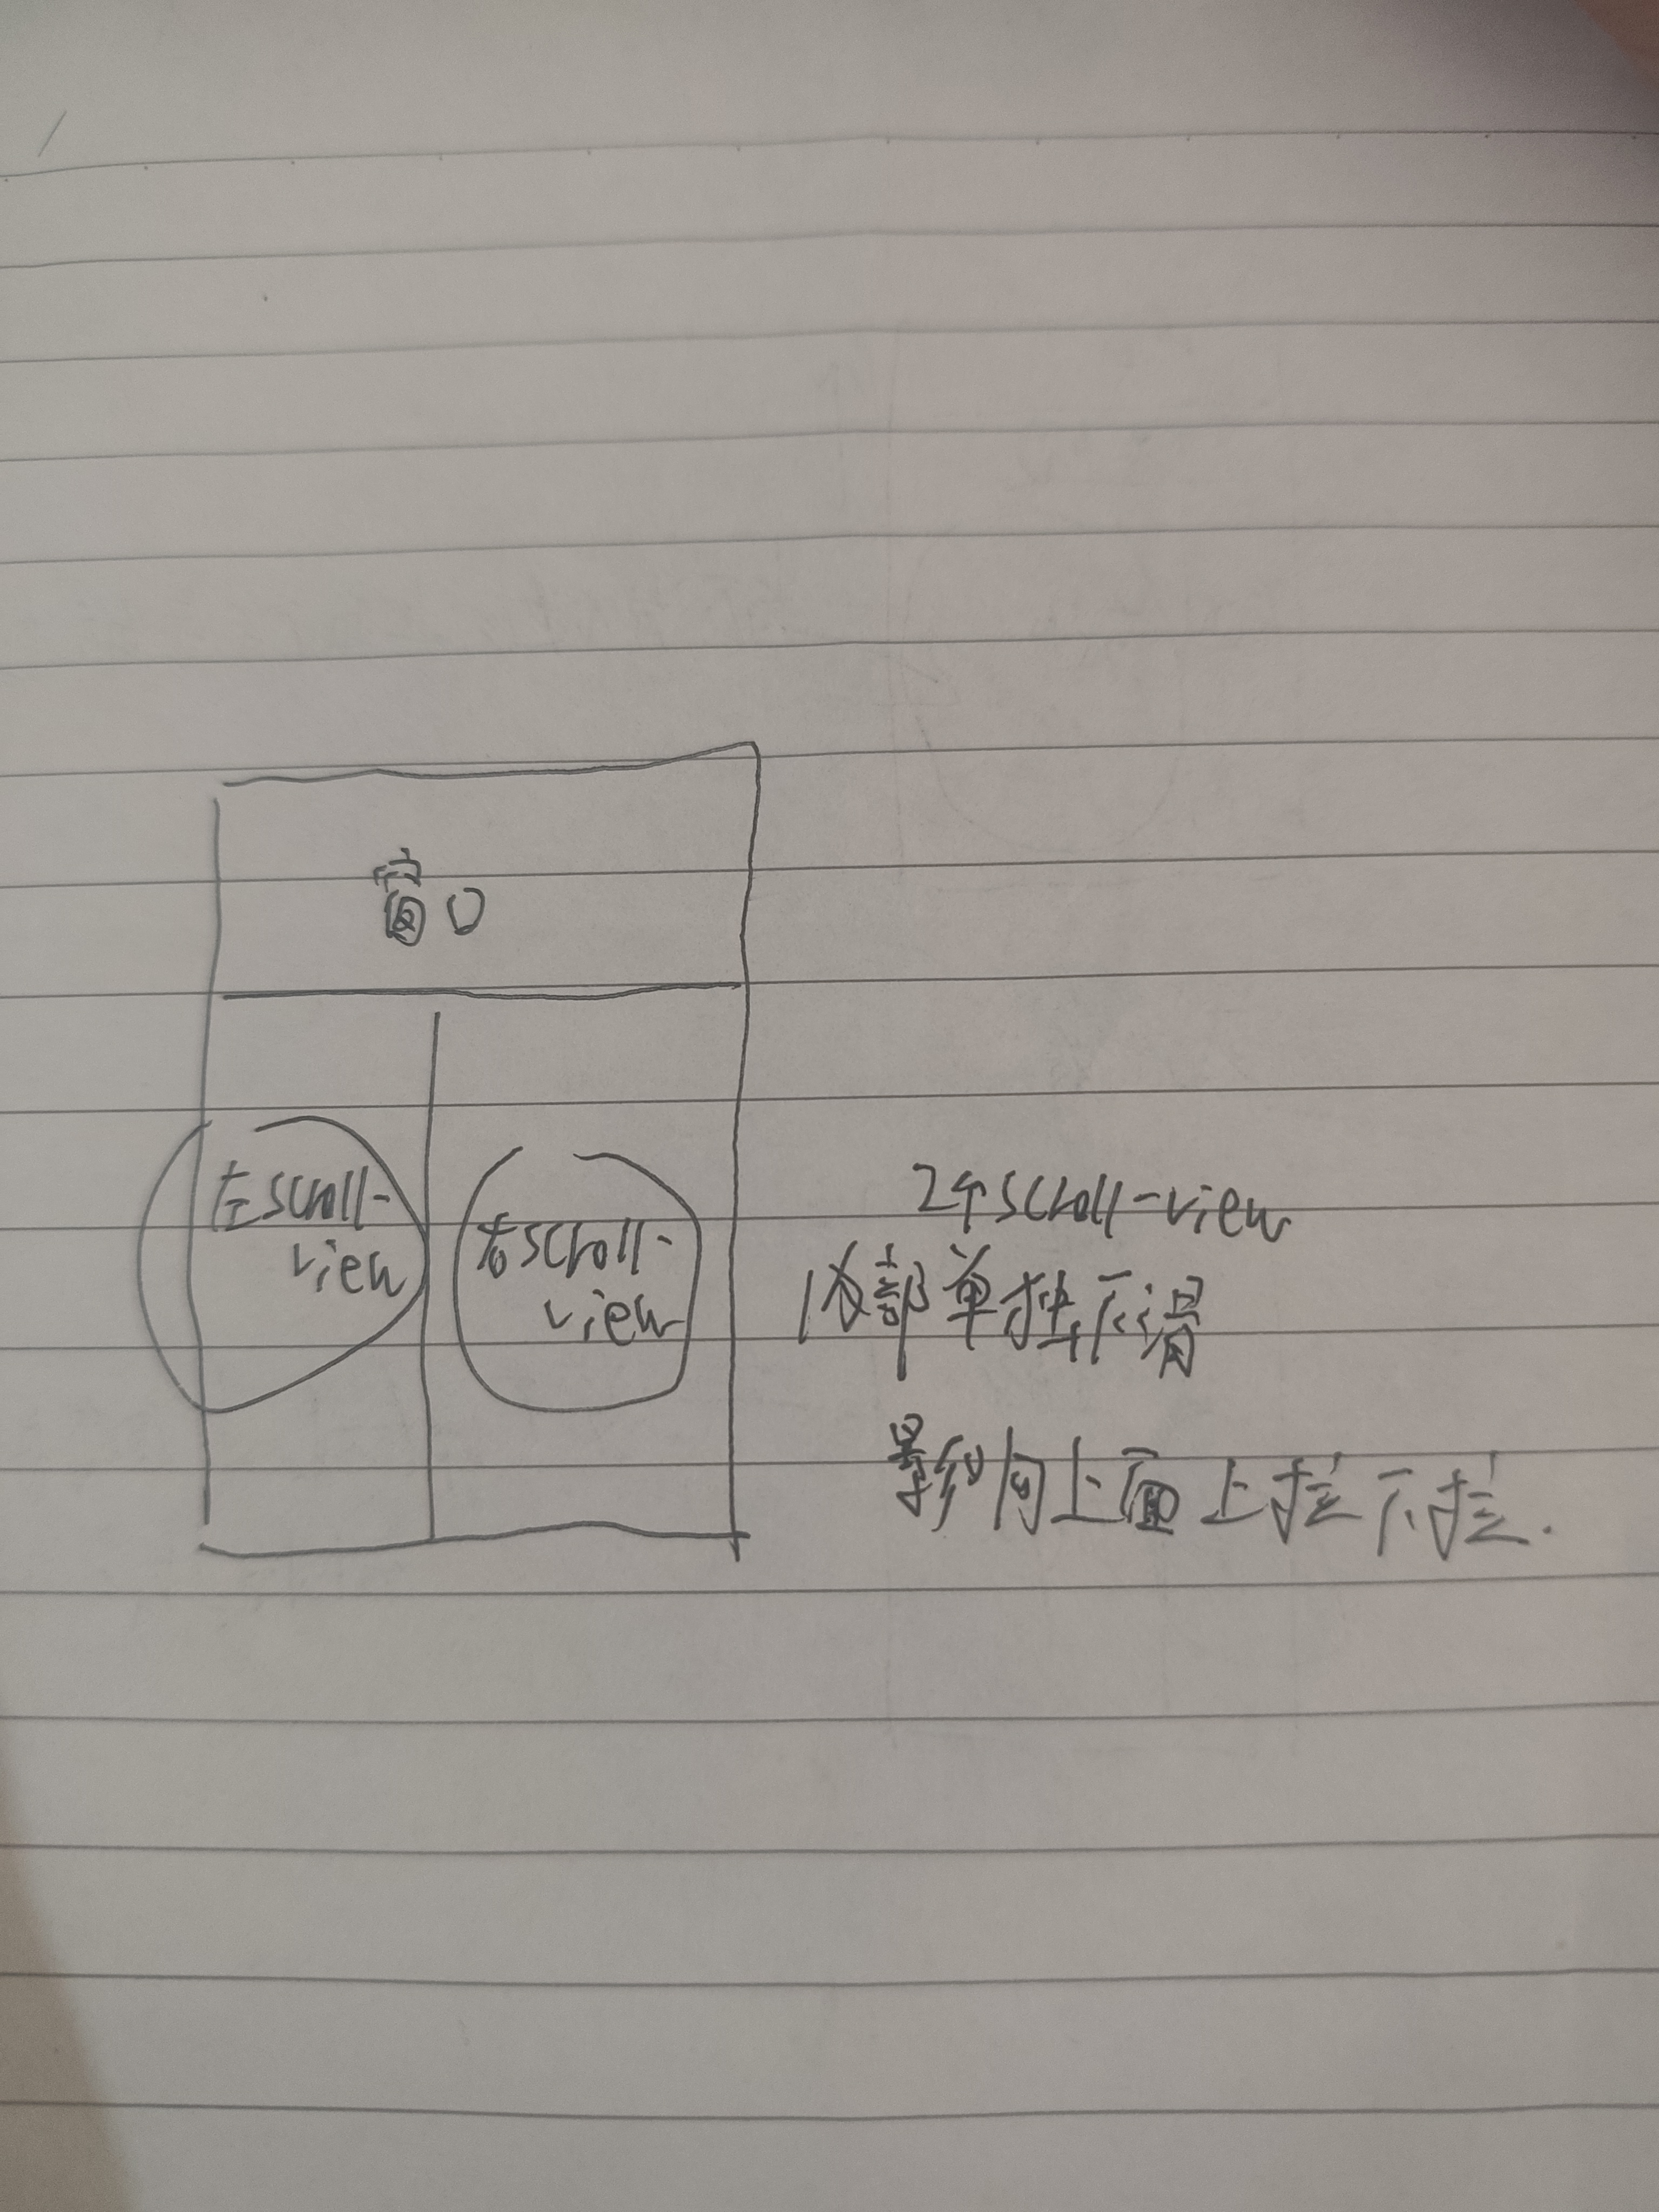 窗口
左scroll-
view
右scroll-
view
2个scroll-view
内部单独下滑
影响上面上拉下拉.